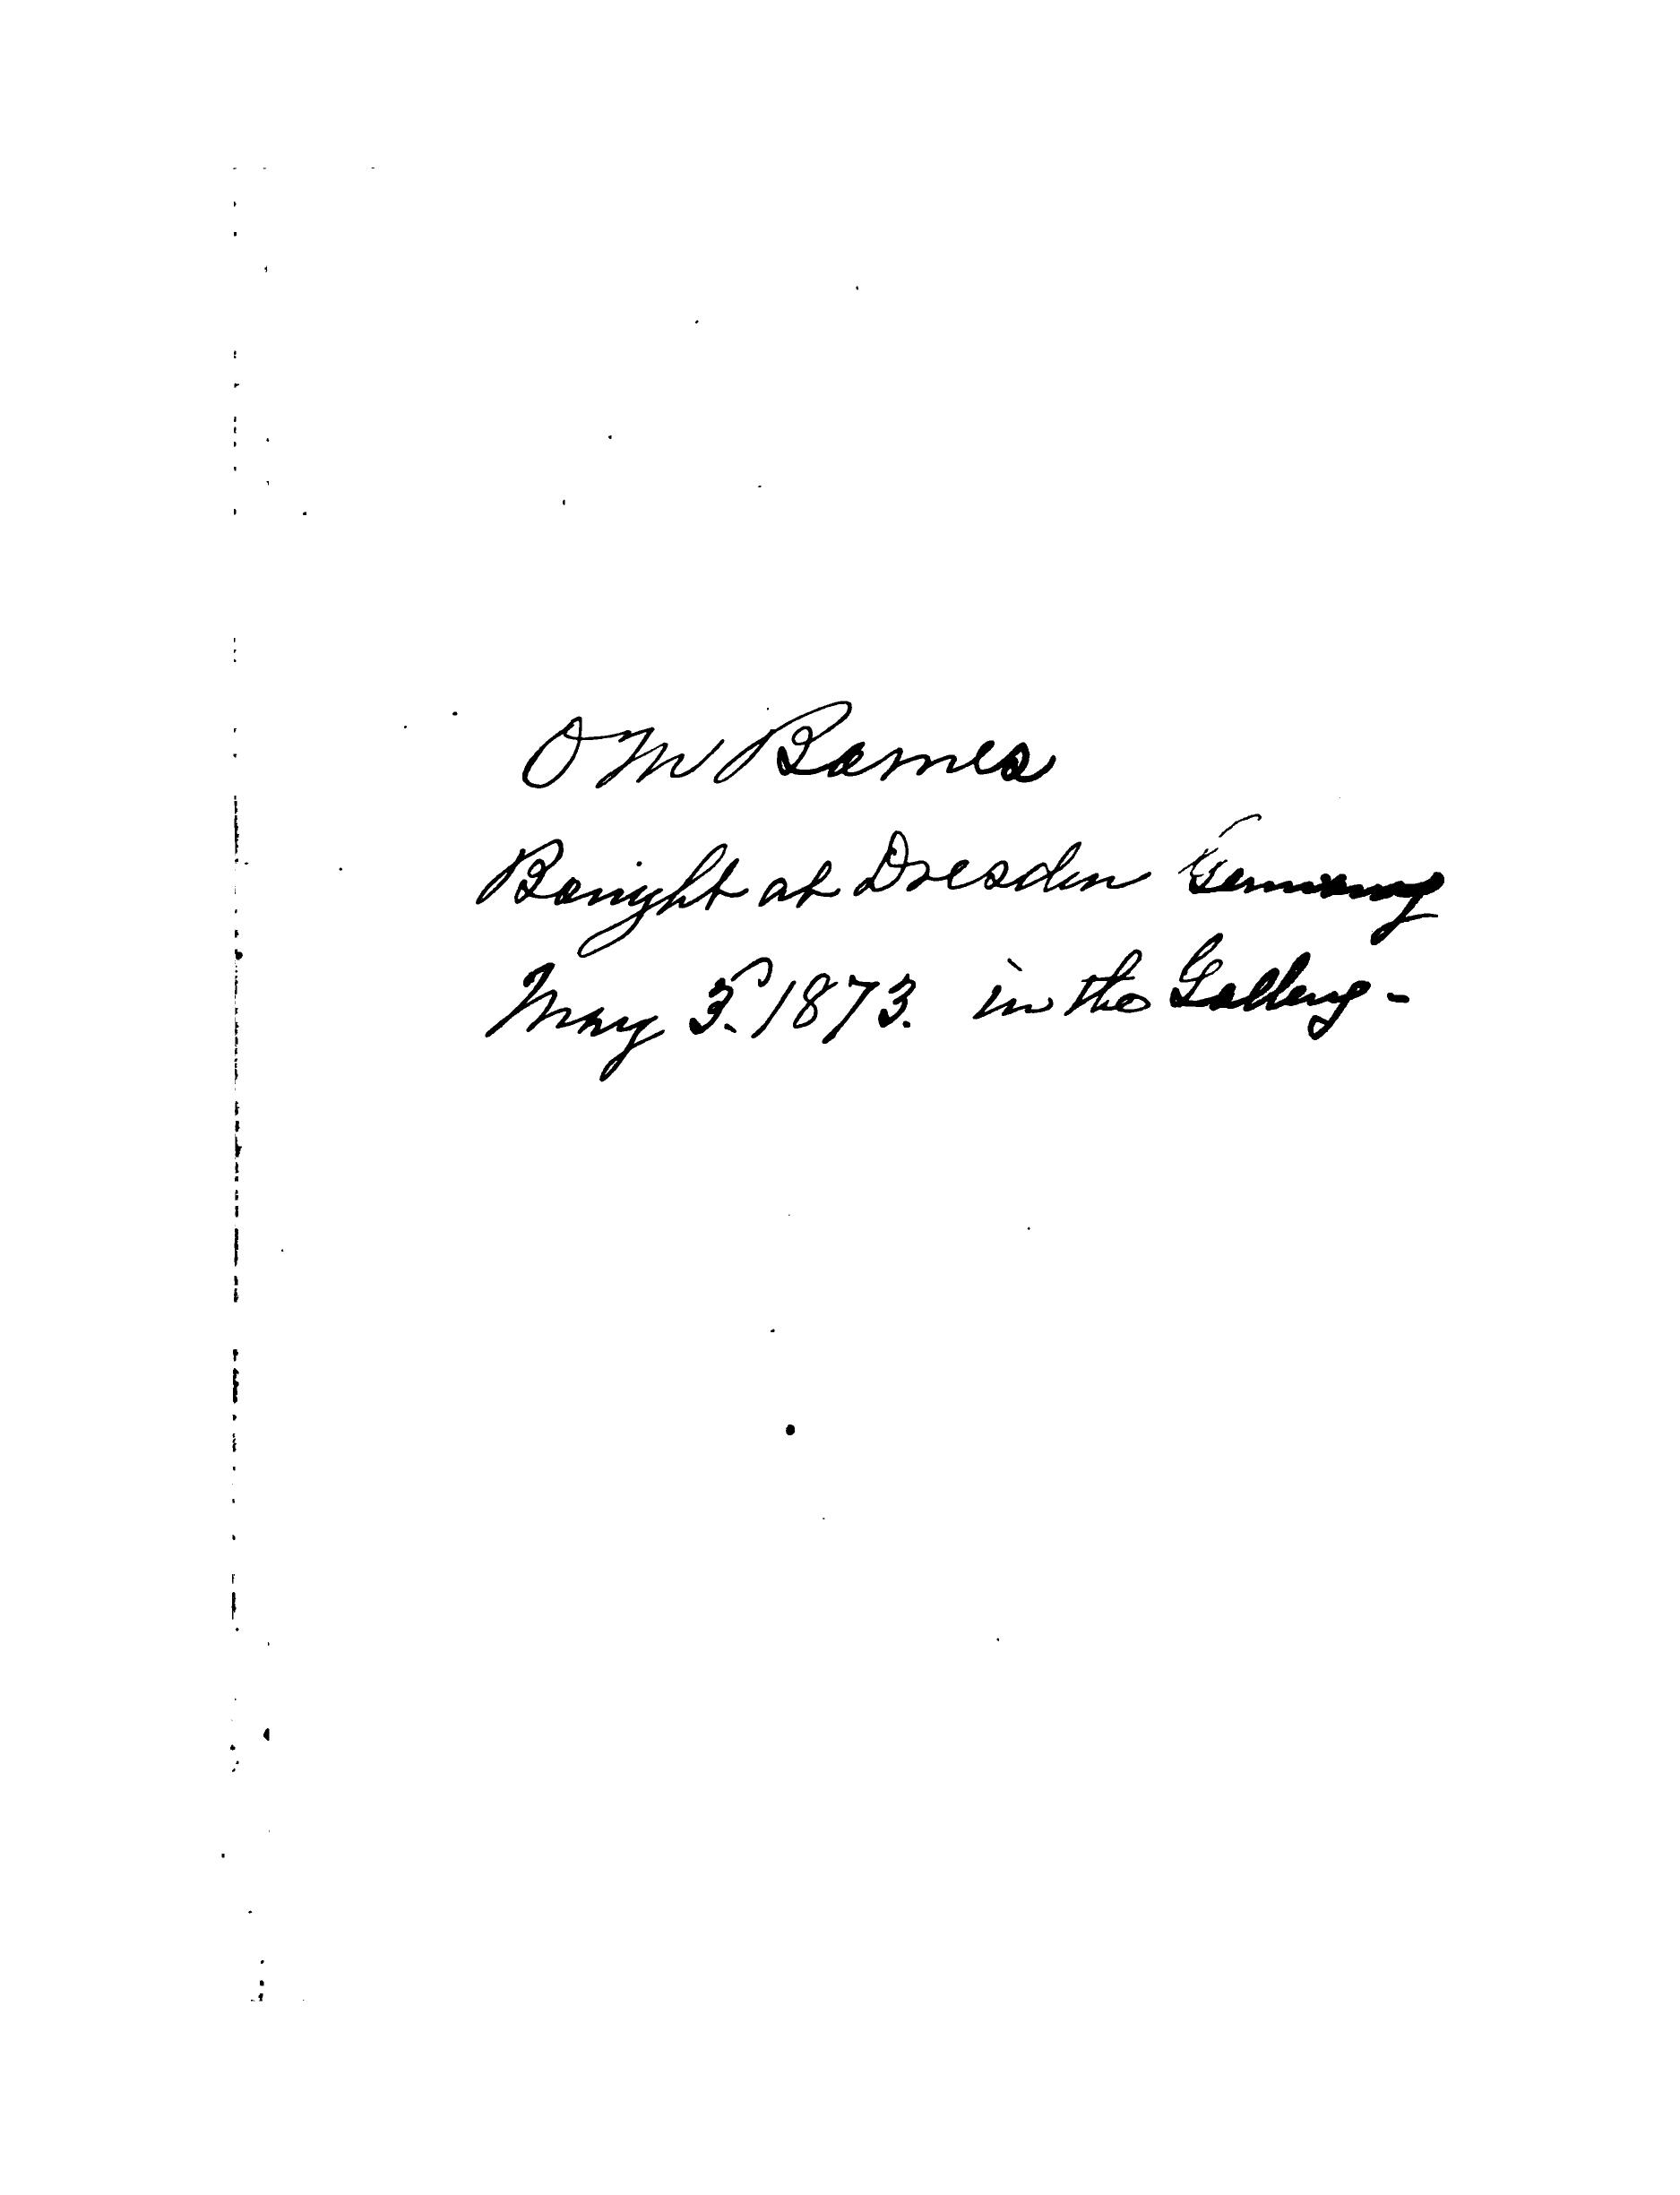 O M Barnes
Bought at Dresden Germany
May 3d. 1873. in the Gallery -